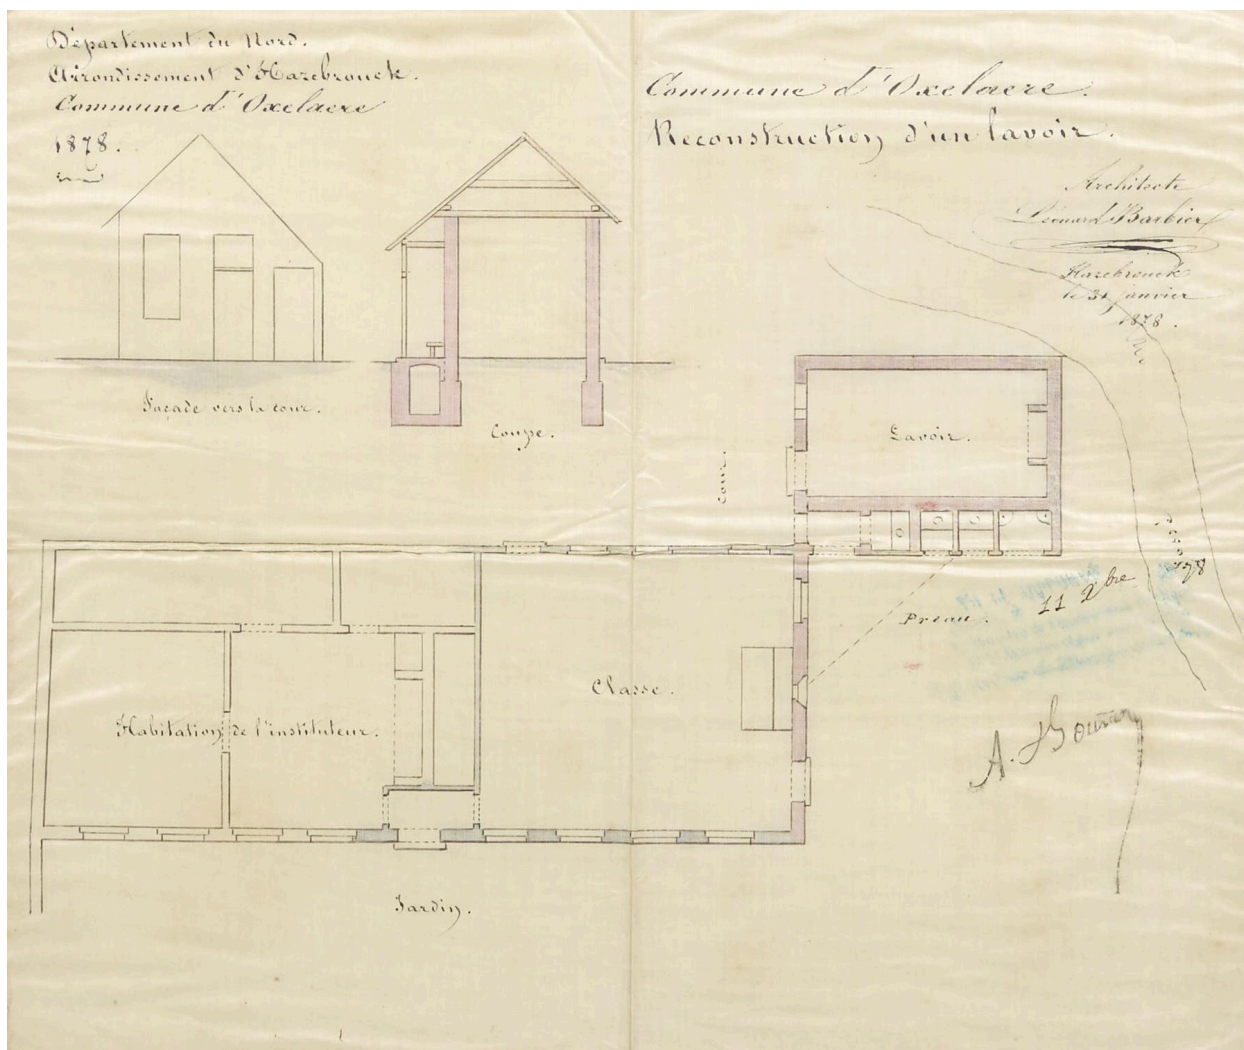 Département du Nord.
Arrondissement d'Hazebrouck.
Commune d'Oxelaere
1878.
Commune d'Oxelaere.
Reconstruction d'un lavoir.
Architecte
Léonard Barbier
Hazebrouck
le 31 janvier
1878.
Façade vers la cour.
Coupe.
Cour.
Lavoir.
Préau.
11 Xbre
1878
Classe.
Habitation de l'instituteur.
A.
Jardin.